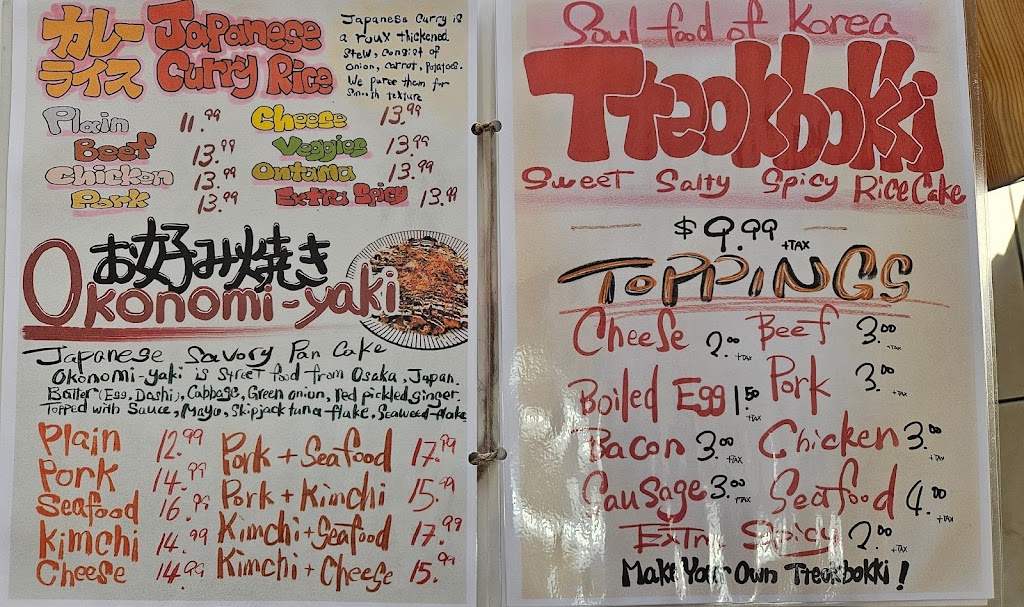 カレー
ライス
Japanese
Curry Rice
Japanese Curry is
a roux thickened
stew, consist of
onion, carrot, potatoes.
We puree them for
smooth texture
Plain 11.99
Beef 13.99
Chicken 13.99
Pork 13.99
Cheese 13.99
Veggies 13.99
Ontama 13.99
Extra Spicy 13.99
お好み焼き
Okonomi-yaki
Japanese Savory Pan Cake
Okonomi-yaki is street food from Osaka, Japan.
Batter (Egg, Dashi), Cabbage, Green onion, Red pickled ginger.
Topped with Sauce, Mayo, Skipjack tuna-flake, Seaweed-flake
Plain 12.99
Pork 14.99
Seafood 16.99
Kimchi 14.99
Cheese 14.99
Pork + Seafood 17.99
Pork + Kimchi 15.99
Kimchi + Seafood 17.99
Kimchi + Cheese 15.99
Soul food of Korea
Tteokbokki
Sweet Salty Spicy Rice Cake
$9.99 +TAX
TOPPINGS
Cheese 2.00 +TAX
Beef 3.00 +TAX
Boiled Egg 1.50 +TAX
Pork 3.00 +TAX
Bacon 3.00 +TAX
Chicken 3.00 +TAX
Sausage 3.00 +TAX
Seafood 4.00 +TAX
Extra Spicy 2.00 +TAX
Make Your Own Tteokbokki!